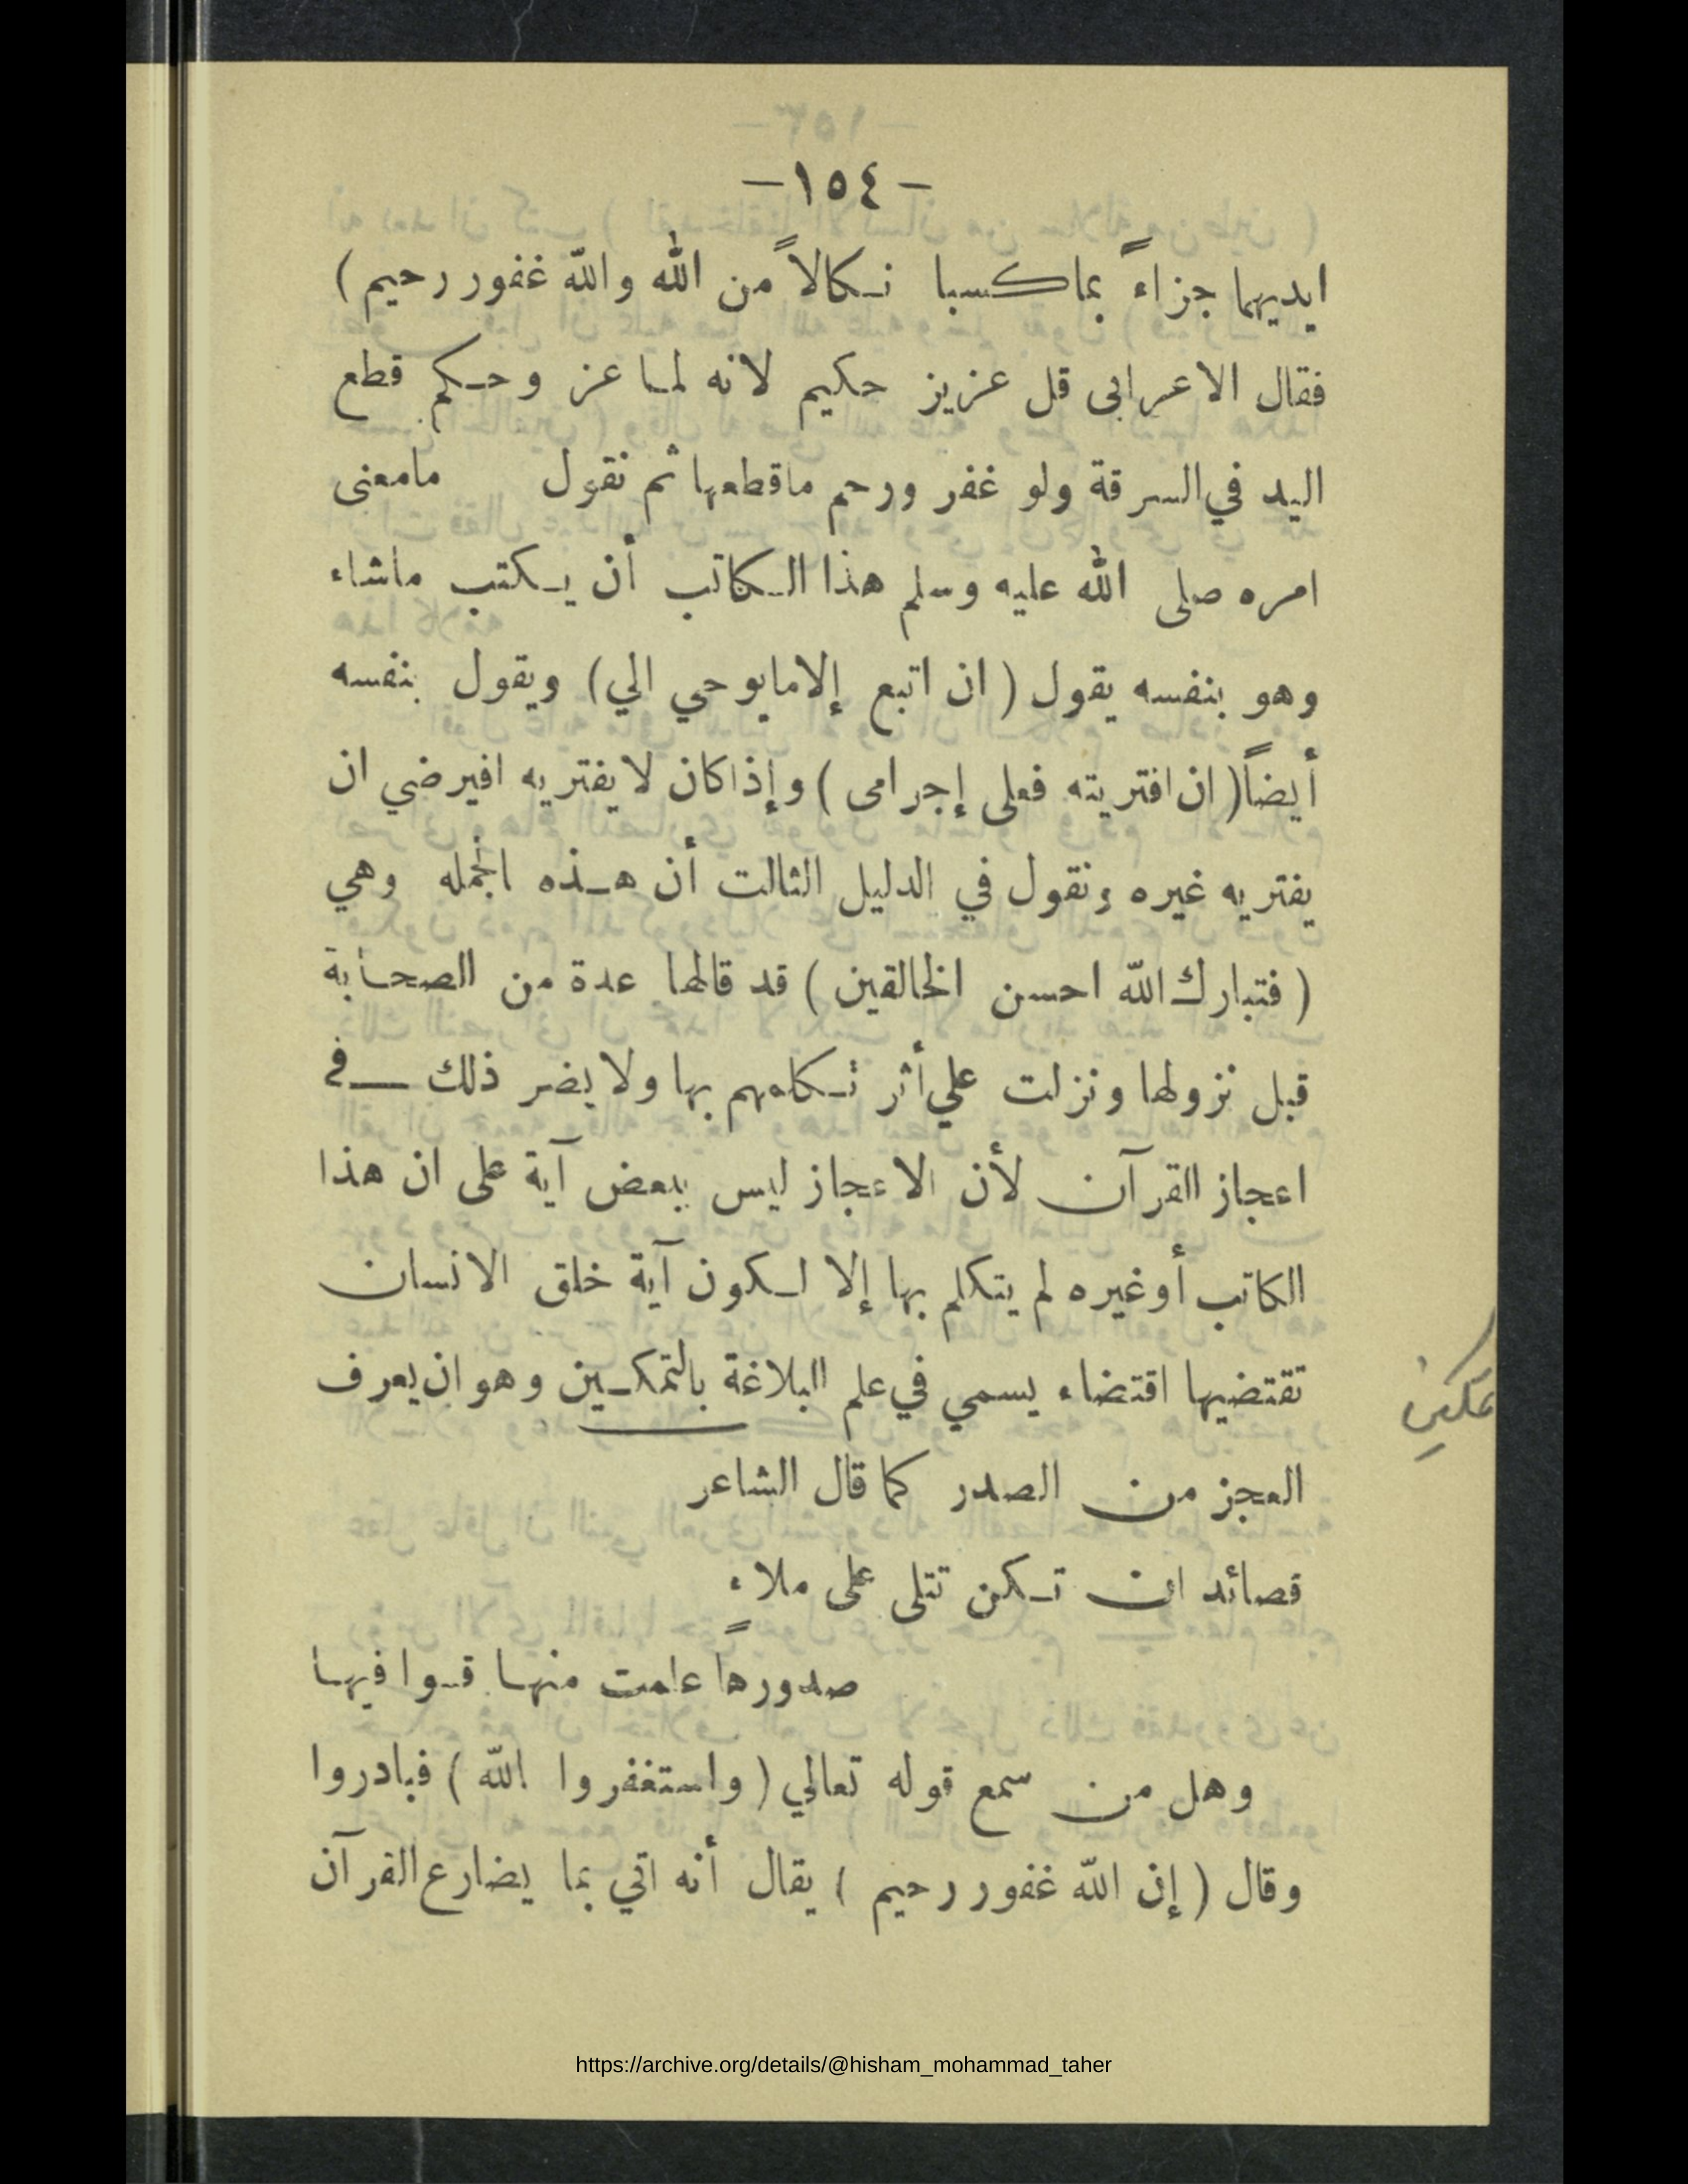 -١٥٤-
ايديهما جزاءً بماكسبا نكالاً من الله والله غفور رحيم )
فقال الاعرابى قل عزيز حكيم لانه لما عز وحكم قطع
اليد في السرقة ولو غفر ورحم ماقطعها ثم نقول مامعنى
امره صلى الله عليه وسلم هذا الكاتب أن يكتب ماشاء
وهو بنفسه يقول ( ان اتبع إلامايوحي الي) ويقول بنفسه
أيضاً ( ان افتريته فعلى إجرامى ) وإذا كان لا يفتريه افيرضي ان
يفتريه غيره ونقول في الدليل الثالت أن هذه الجمله وهي
( فتبارك الله احسن الخالقين ) قد قالها عدة من الصحابة
قبل نزولها ونزلت علي أثر تكلمهم بها ولا يضر ذلك في
اعجاز القرآن لأن الاعجاز ليس ببعض آية على ان هذا
الكاتب أوغيره لم يتكلم بها إلا لكون آية خلق الانسان
تقتضيها اقتضاء يسمي في علم البلاغة بالتمكين وهو ان يعرف
تمكين
العجز من الصدر كما قال الشاعر
قصائد ان تكن تتلى على ملاءٍ
صدورها علمت منها قوافيها
وهل من سمع قوله تعالي ( واستغفروا الله ) فبادروا
وقال ( إن الله غفور رحيم ) يقال أنه اتي بما يضارع القرآن
https://archive.org/details/@hisham_mohammad_taher